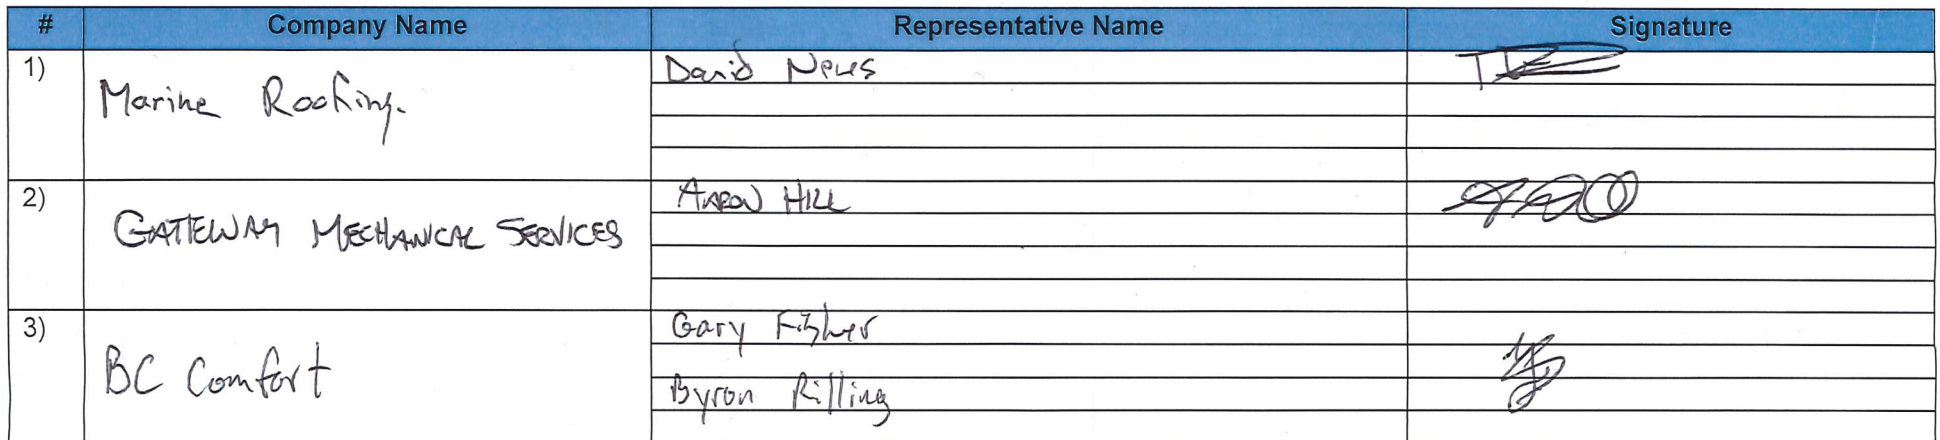 # Company Name Representative Name Signature
1) Marine Roofing. David
2) GATEWAY MECHANICAL SERVICES AARON HILL
3) BC Comfort Gary Fisher
Byron Rilling